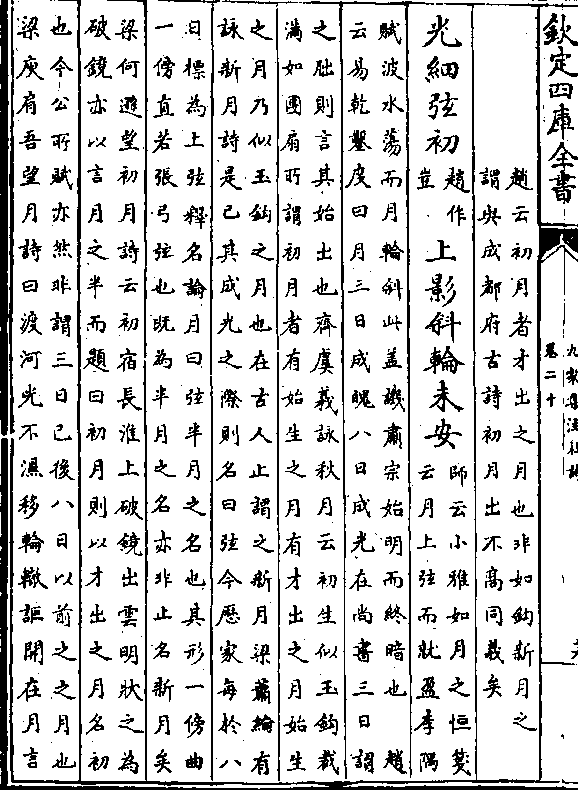 欽定四庫全書
九家集注杜詩
卷二十
趙云初月者才出之月也非如鈎新月之
謂與成都府古詩初月出不高同義矣
光細弦初
趙作
豈
上影斜輪未安
師云小雅如月之恒箋
云月上弦而就盈李隅
賦波水蕩而月輪斜此盖譏肅宗始明而終暗也 趙
云易乾鑿度曰月三日成魄八日成光在尚書三日謂
之朏則言其始出也齊虞羲詠秋月云初生似玉鈎裁
滿如團扇所謂初月者有始生之月有才出之月始生
之月乃似玉鈎之月也在古人止謂之新月梁蕭綸有
詠新月詩是已其成光之際則名曰弦今厯家每於八
日標為上弦釋名論月曰弦半月之名也其形一傍曲
一傍直若張弓弦也既為半月之名亦非止名新月矣
梁何遜望初月詩云初宿長淮上破鏡出雲明狀之為
破鏡亦以言月之半而題曰初月則以才出之月名初
也今公所賦亦然非謂三日已後八日以前之之月也
梁庾肩吾望月詩曰渡河光不濕移輪轍詎開在月言